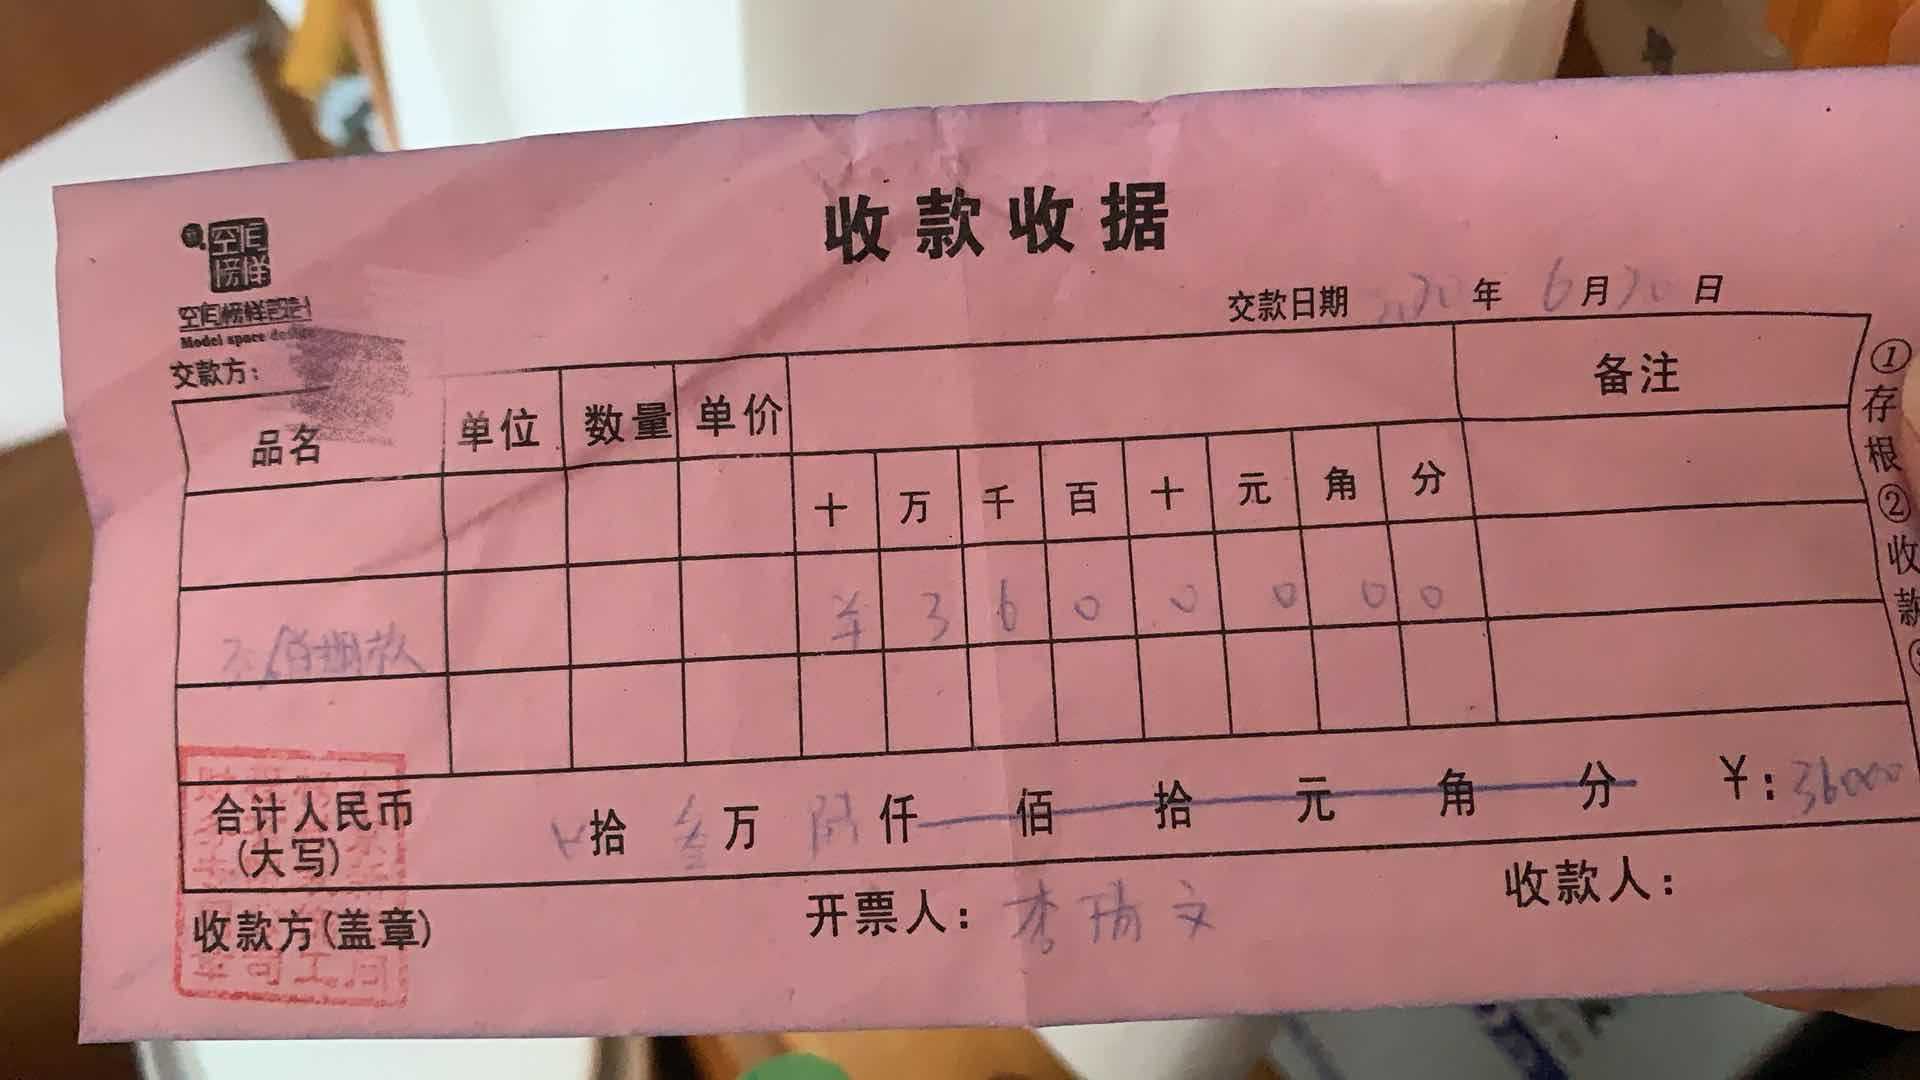 空间榜样
收款收据
空间榜样设计
Model space design
交款日期 2020年 6月30日
交款方：
品名 单位 数量 单价 备注
十 万 千 百 十 元 角 分
款 ¥ 3 6 0 0 0 0 0
合计人民币 拾 叁万 陆仟 佰 拾 元 角 分 ¥：36000
(大写)
收款方(盖章) 开票人：李 文 收款人：
①存根②收款